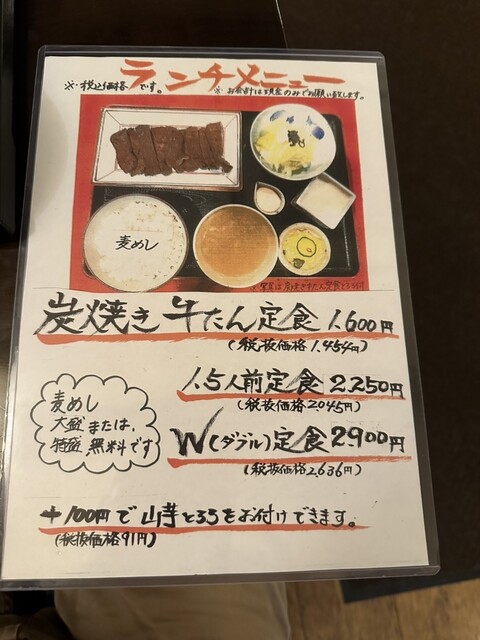 ランチメニュー
※税込価格です。
※お会計は現金のみでお願い致します。
麦めし
炭焼き 牛たん定食 1.600円
(税抜価格1.454円)
1.5人前定食 2.250円
(税抜価格2045円)
麦めし
大盛または、
特盛 無料です
W(ダブル)定食 2.900円
(税抜価格2,636円)
+100円で山芋とろろをお付けできます。
(税抜価格91円)